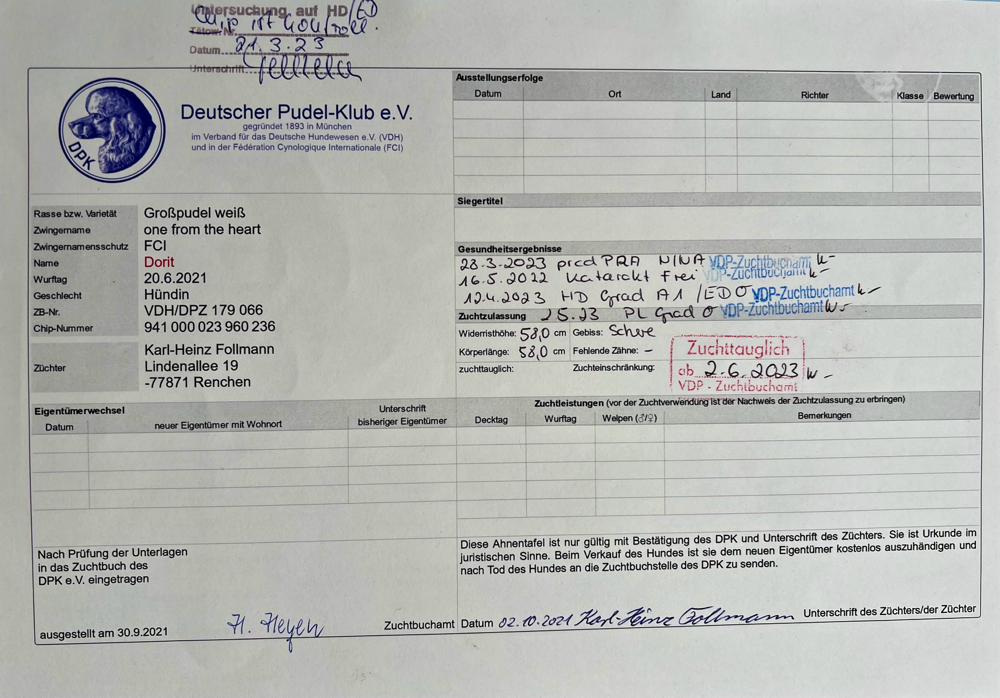 Untersuchung, auf HD/ED
Chip ist kontroll.
Tätow.Nr.
Datum 21.3.23
Unterschrift
DPK
Deutscher Pudel-Klub e.V.
gegründet 1893 in München
im Verband für das Deutsche Hundewesen e.V. (VDH)
und in der Fédération Cynologique Internationale (FCI)
Rasse bzw. Varietät Großpudel weiß
Zwingername one from the heart
Zwingernamensschutz FCI
Name Dorit
Wurftag 20.6.2021
Geschlecht Hündin
ZB-Nr. VDH/DPZ 179 066
Chip-Nummer 941 000 023 960 236
Züchter Karl-Heinz Follmann
Lindenallee 19
-77871 Renchen
Ausstellungserfolge
Datum Ort Land Richter Klasse Bewertung
Siegertitel
Gesundheitsergebnisse
28.3.2023 prcd PRA N/N/A VDP-Zuchtbuchamt
16.5.2022 Katarakt Frei VDP-Zuchtbuchamt
12.4.2023 HD Grad A1 /ED 0 VDP-Zuchtbuchamt
Zuchtzulassung 2.5.23 PL Grad 0 VDP-Zuchtbuchamt
Widerristhöhe: 58,0 cm Gebiss: Schere
Körperlänge: 58,0 cm Fehlende Zähne: –
zuchttauglich: Zuchteinschränkung:
Zuchttauglich
ab 2.6.2023
VDP - Zuchtbuchamt
Eigentümerwechsel
Datum neuer Eigentümer mit Wohnort Unterschrift bisheriger Eigentümer
Zuchtleistungen (vor der Zuchtverwendung ist der Nachweis der Zuchtzulassung zu erbringen)
Decktag Wurftag Welpen (♂/♀) Bemerkungen
Nach Prüfung der Unterlagen
in das Zuchtbuch des
DPK e.V. eingetragen
ausgestellt am 30.9.2021 H. Heyen Zuchtbuchamt
Diese Ahnentafel ist nur gültig mit Bestätigung des DPK und Unterschrift des Züchters. Sie ist Urkunde im
juristischen Sinne. Beim Verkauf des Hundes ist sie dem neuen Eigentümer kostenlos auszuhändigen und
nach Tod des Hundes an die Zuchtbuchstelle des DPK zu senden.
Datum 02.10.2021 Karl-Heinz Follmann Unterschrift des Züchters/der Züchter